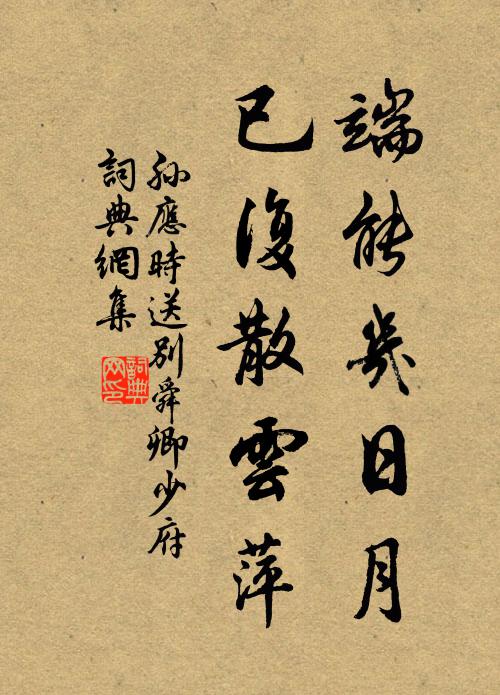 端能幾日月
已復散雲萍
孫應時送別舜卿少府
詞典網集
詞典
网印